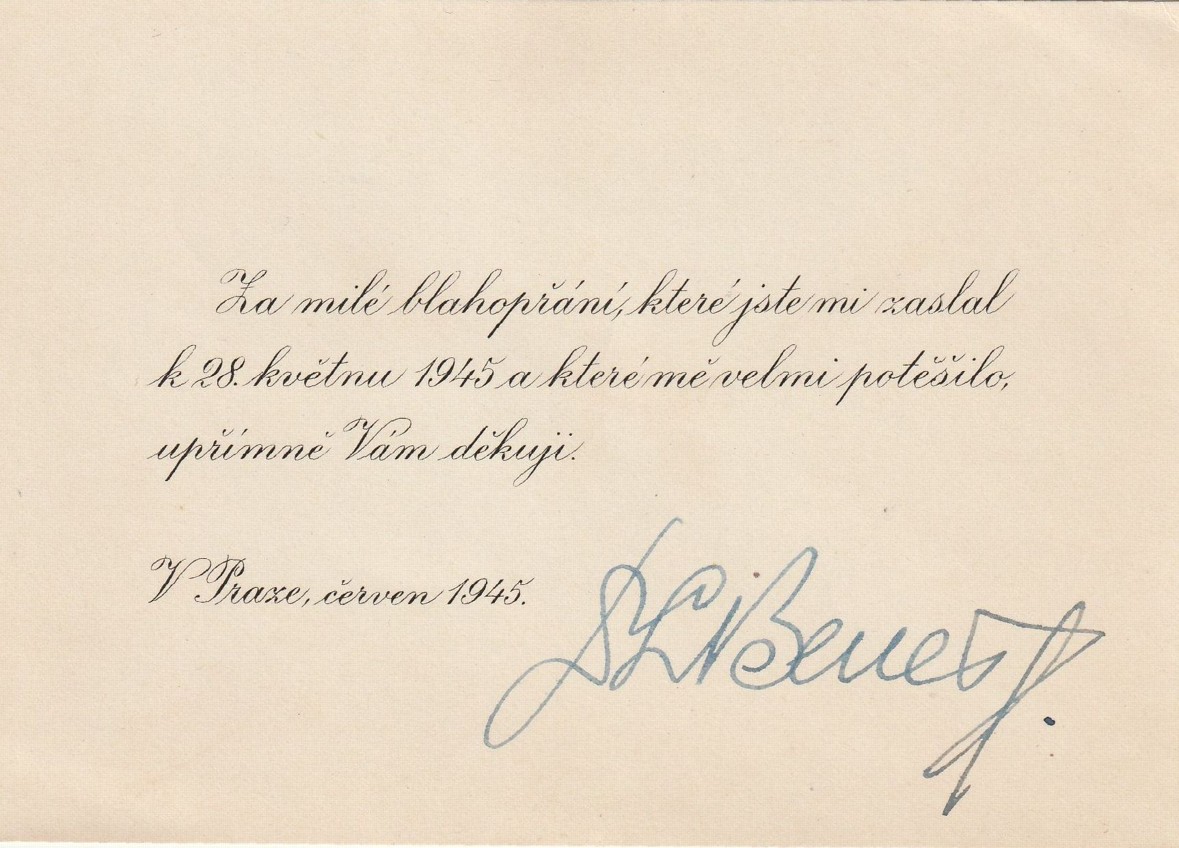 Za milé blahopřání, které jste mi zaslal
k 28. květnu 1945 a které mě velmi potěšilo,
upřímně Vám děkuji.
V Praze, červen 1945.
Dr Beneš